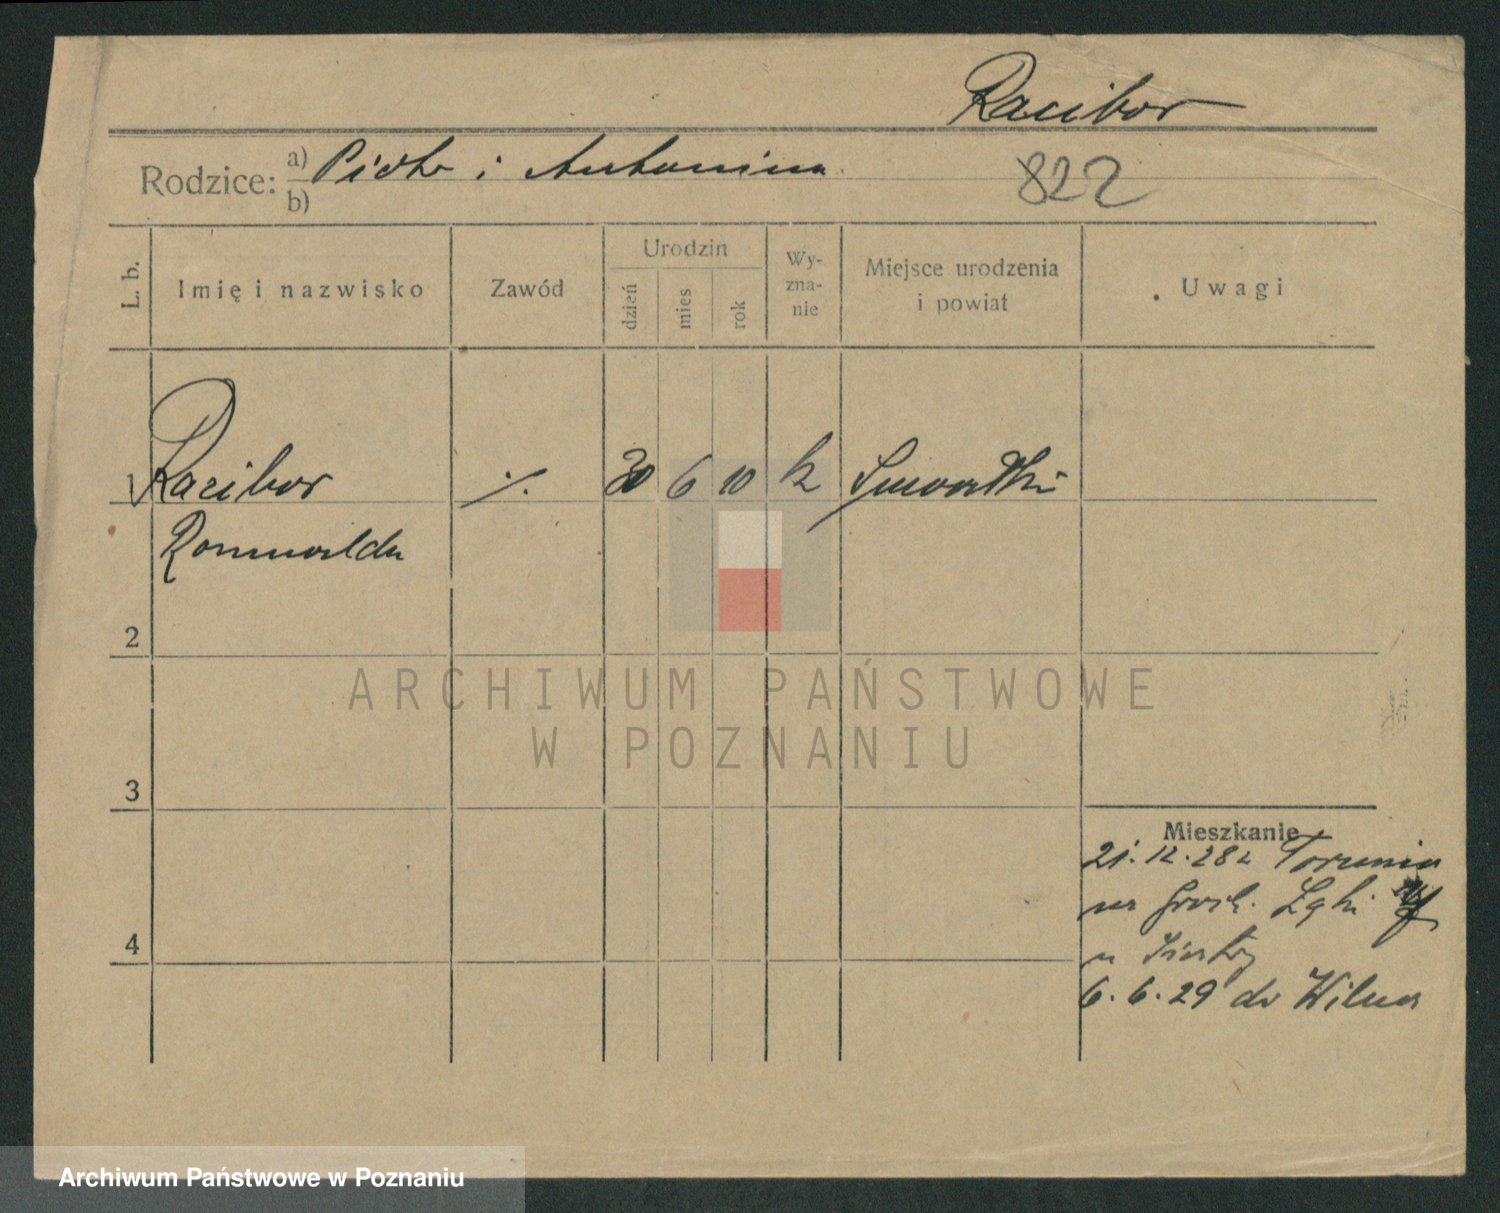 Racibor
Rodzice: a) Piotr i Antonina
b)
822
L. b.
Imię i nazwisko
Zawód
Urodzin
dzień
mies
rok
Wy-
zna-
nie
Miejsce urodzenia
i powiat
Uwagi
1 Racibor ./. 30 6 10 k Suwałki
Romualda
2
3
4
Mieszkanie
21.12.28 z Torunia
na Grock. Łąki
u
6.6.29 do Wilna
ARCHIWUM PAŃSTWOWE
W POZNANIU
Archiwum Państwowe w Poznaniu